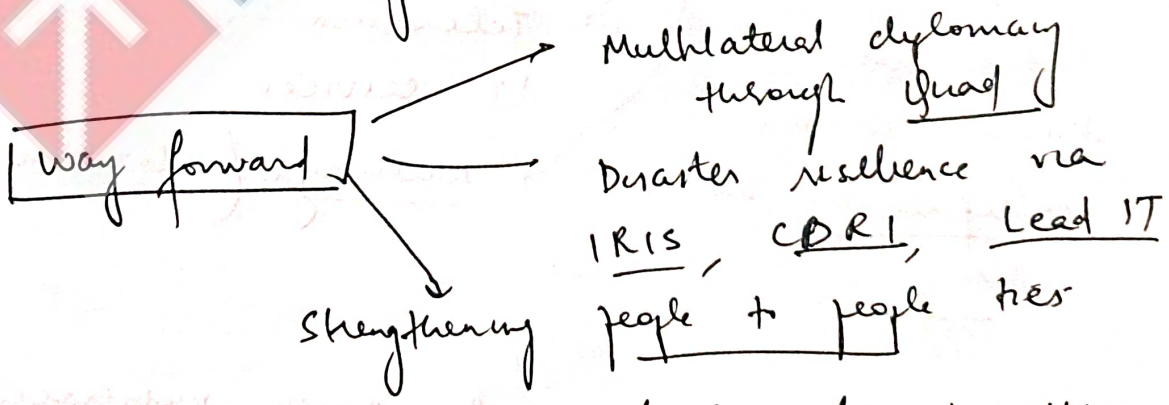 Multilateral diplomacy
through Quad
way forward
Disaster resilience via
IRIS, CDRI, Lead IT
Strengthening people to people ties